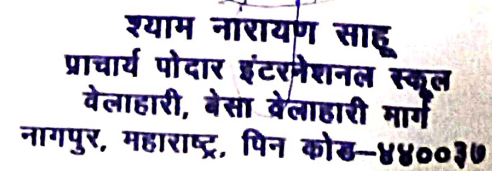 श्याम नारायण साहू
प्राचार्य पोदार इंटरनेशनल स्कूल
वेलाहारी, बेसा वेलाहारी मार्ग
नागपुर, महाराष्ट्र, पिन कोड–४४००३७